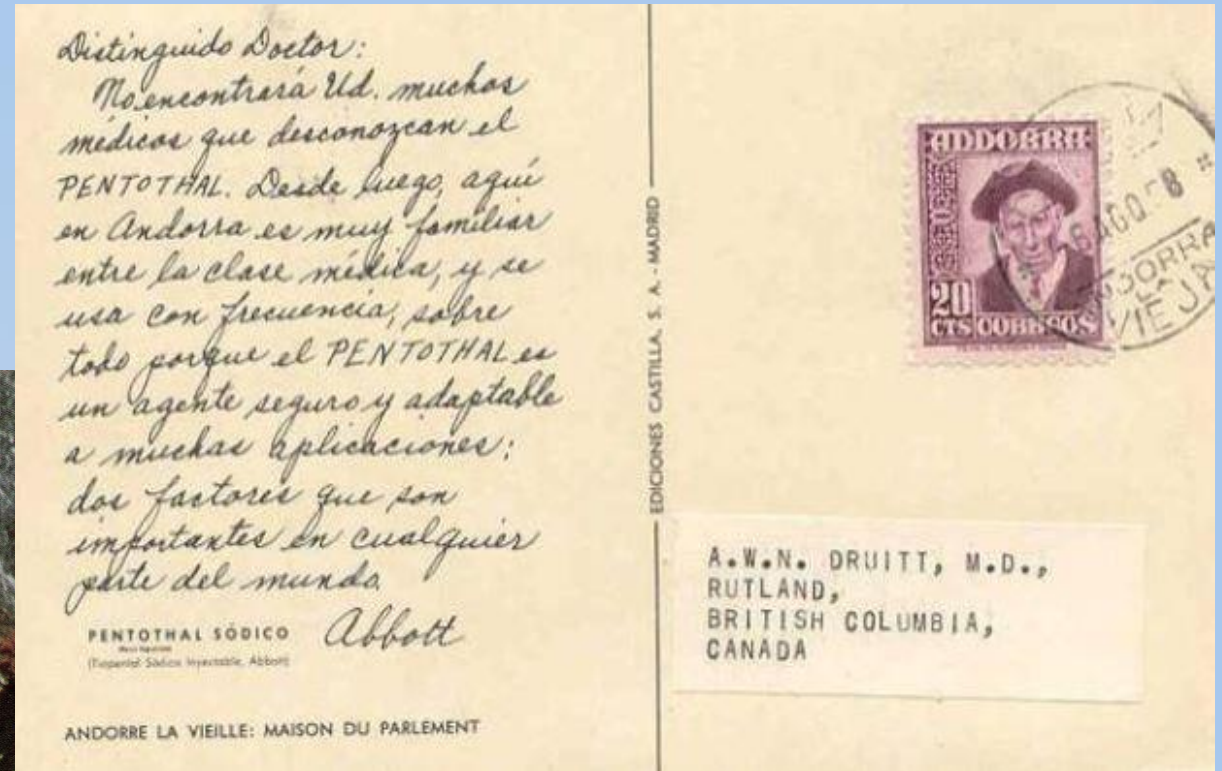 Distinguido Doctor:
No encontrará Ud. muchos
médicos que desconozcan el
PENTOTHAL. Desde luego, aquí
en Andorra es muy familiar
entre la clase médica, y se
usa con frecuencia, sobre
todo porque el PENTOTHAL es
un agente seguro y adaptable
a muchas aplicaciones:
dos factores que son
importantes en cualquier
parte del mundo.
Abbott
PENTOTHAL SÓDICO
(Tiopental Sódico Inyectable, Abbott)
ANDORRE LA VIEILLE: MAISON DU PARLEMENT
EDICIONES CASTILLA, S. A. - MADRID
ANDORRA
20
CTS CORREOS
AGO
ANDORRA
LA
VIEJA
A.W.N. DRUITT, M.D.,
RUTLAND,
BRITISH COLUMBIA,
CANADA